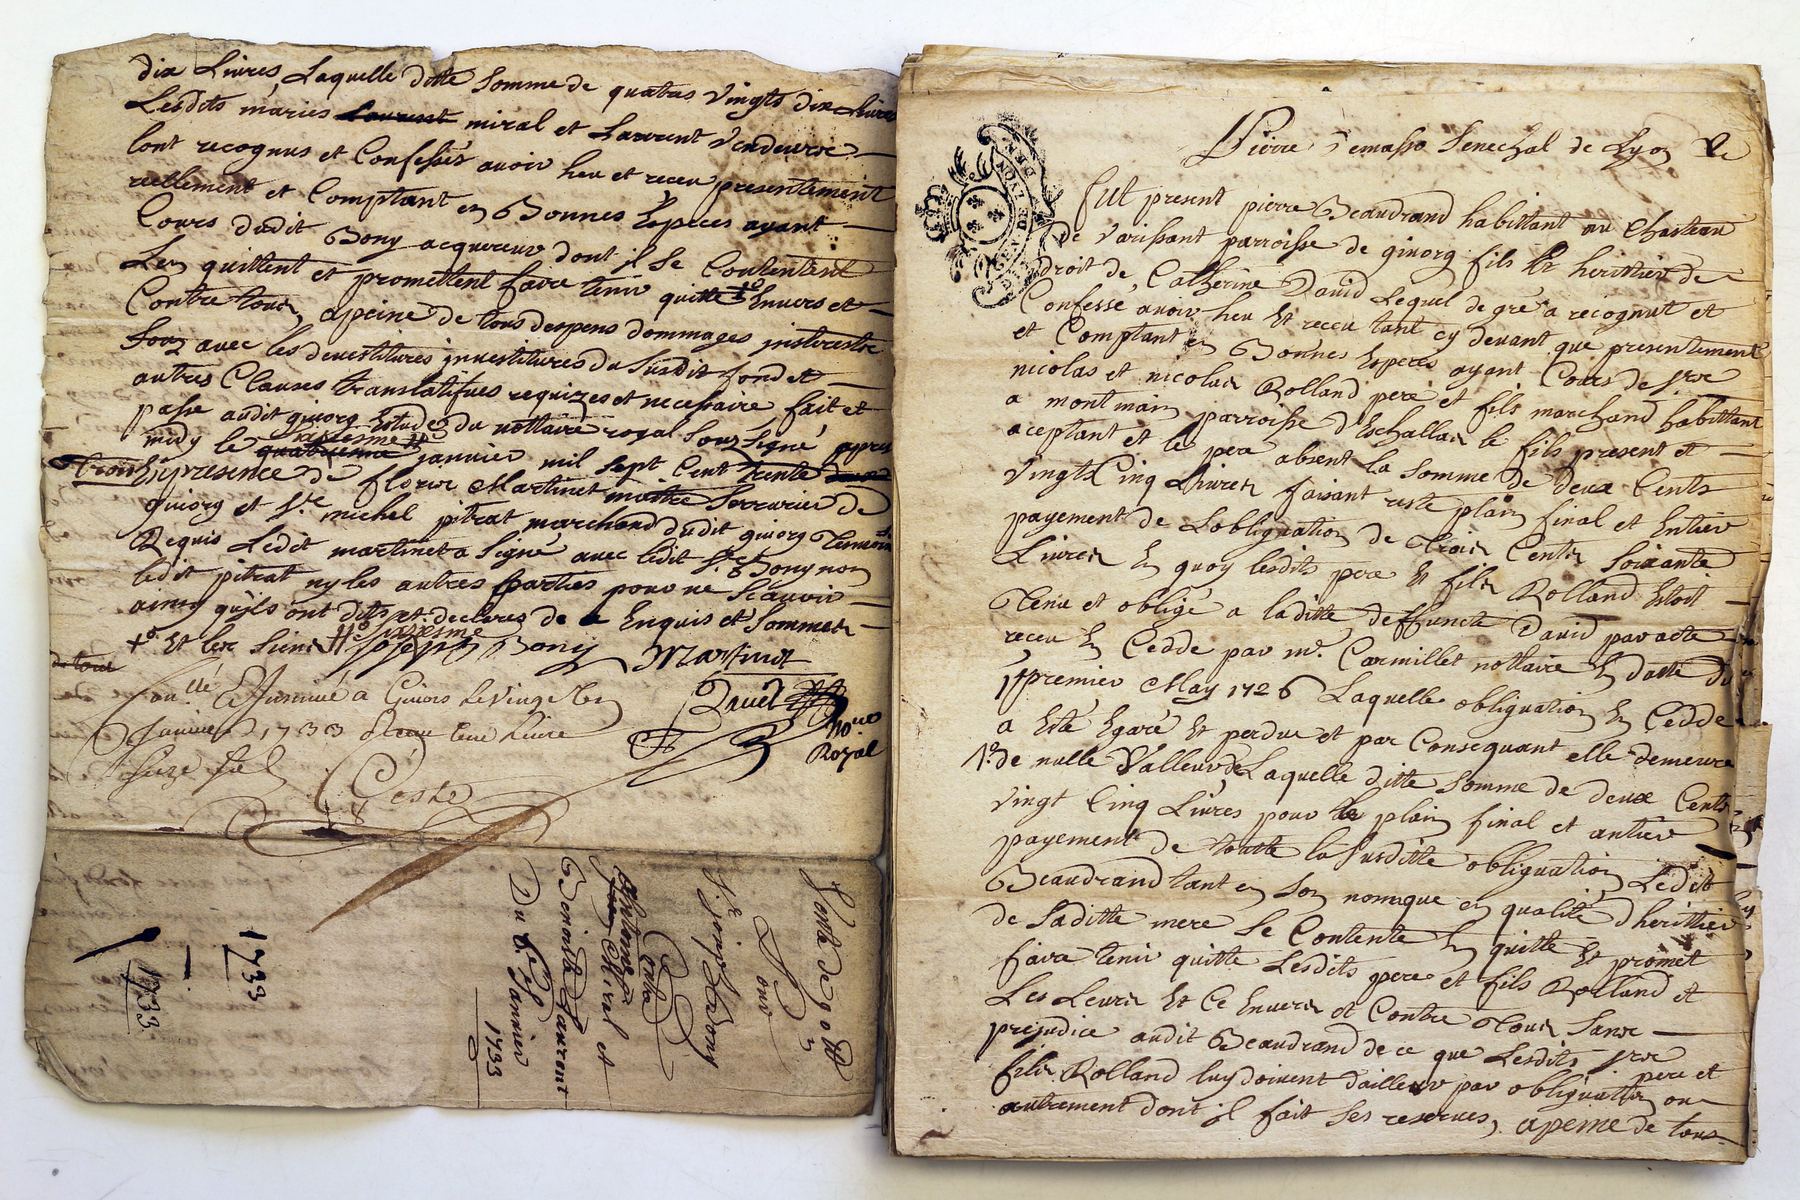 dix Livres, Laquelle ditte somme de quatres vingts dix Livres
Lesdits maries Laurent miral et Laurent Vendeurs
lont recognus et Confessés avoir heu et receu presentement
reellement et Comptant en Bonnes Especes ayant
Cours dudit Bony acquereur dont jl se Contentent
Len quittent et promettent faire tenir quitte Envers et
Contre tous, apeine de tous despens dommages jnterestz
souz avec les devestitures jnvestitures du susdit fond et
autres Clauses translatifves requizes et necessaire fait et
passé audit givorg Estude du nottaire royal souz signé, apres
midy le quatrieme janvier mil sept Cent trente
trois En presence de florir Martinet maitre serrurier de
givorg et Sr. michel pitrat marchand dudit givorg Temoins
Requis Ledit martinet a signé avec ledit Sr Bony non
ledit pitrat ny les autres parties pour ne scavoir
ainsy qu'jls ont dits et declares de ce Enquis et sommes
+° Et les siens # sixiesme
joseph Bony Martinet
de tout
Conllé Et Jnsinué a Givors Le vingt
Janvier 1733 Receu Une Livre
Seize sol
Davel
Nore
Royal
Geste
Vente de 90 #
pour
Sr. joseph Bony
contre
Mirel et
Benoiste Laurent
Du 6e. Janvier
1733
1733
1733
Pierre Demasso Senechal de Lyon &c
GEN DE LYON
fut present pierre Beaudrand habittant au Chasteau
de Varissant parroisse de givorg fils & herittier de
droit de Catherine David Lequel de gré a recognut et
Confessé avoir heu Et receu tant cy devant que presentement
et Comptant en Bonnes Especes ayant Cours de srs
nicolas et nicolas Rolland pere et fils marchand habittant
a montmain parroisse d'Eschallas le fils present et
aceptant et le pere absent la somme de deux Cents
Vingts Cinq Livres faisant reste plain final et Entier
payement de Lobliguation de Trois Cents soixante
Livres En quoy lesdits pere Et fils Rolland Estoit
Tenu et obligé a laditte deffuncte David par acte
receu En Cedde par me. Carmillet nottaire En datte du
premier May 1726 Laquelle obliguation En Cedde
a Esté Egaré Et perdue et par Consequant elle demeure
1° de nulle Valleur de Laquelle ditte somme de deux Cents
vingt Cinq Livres pour le plain final et antier
payement de toutte la susditte obliguation Ledit
Beaudrand tant en son nom que en qualité d'herittier
de saditte mere se Contente En quitte Et promet
faire tenir quitte Lesdits pere et fils Rolland et
Les Leurs Et Ce Envers et Contre Tous sans
prejudice audit Beaudrand de ce que Lesdits srs pere et
fils Rolland luy doivent d'ailleur par obliguation ou
autrement dont jl fait ses reserves, apeine de tous